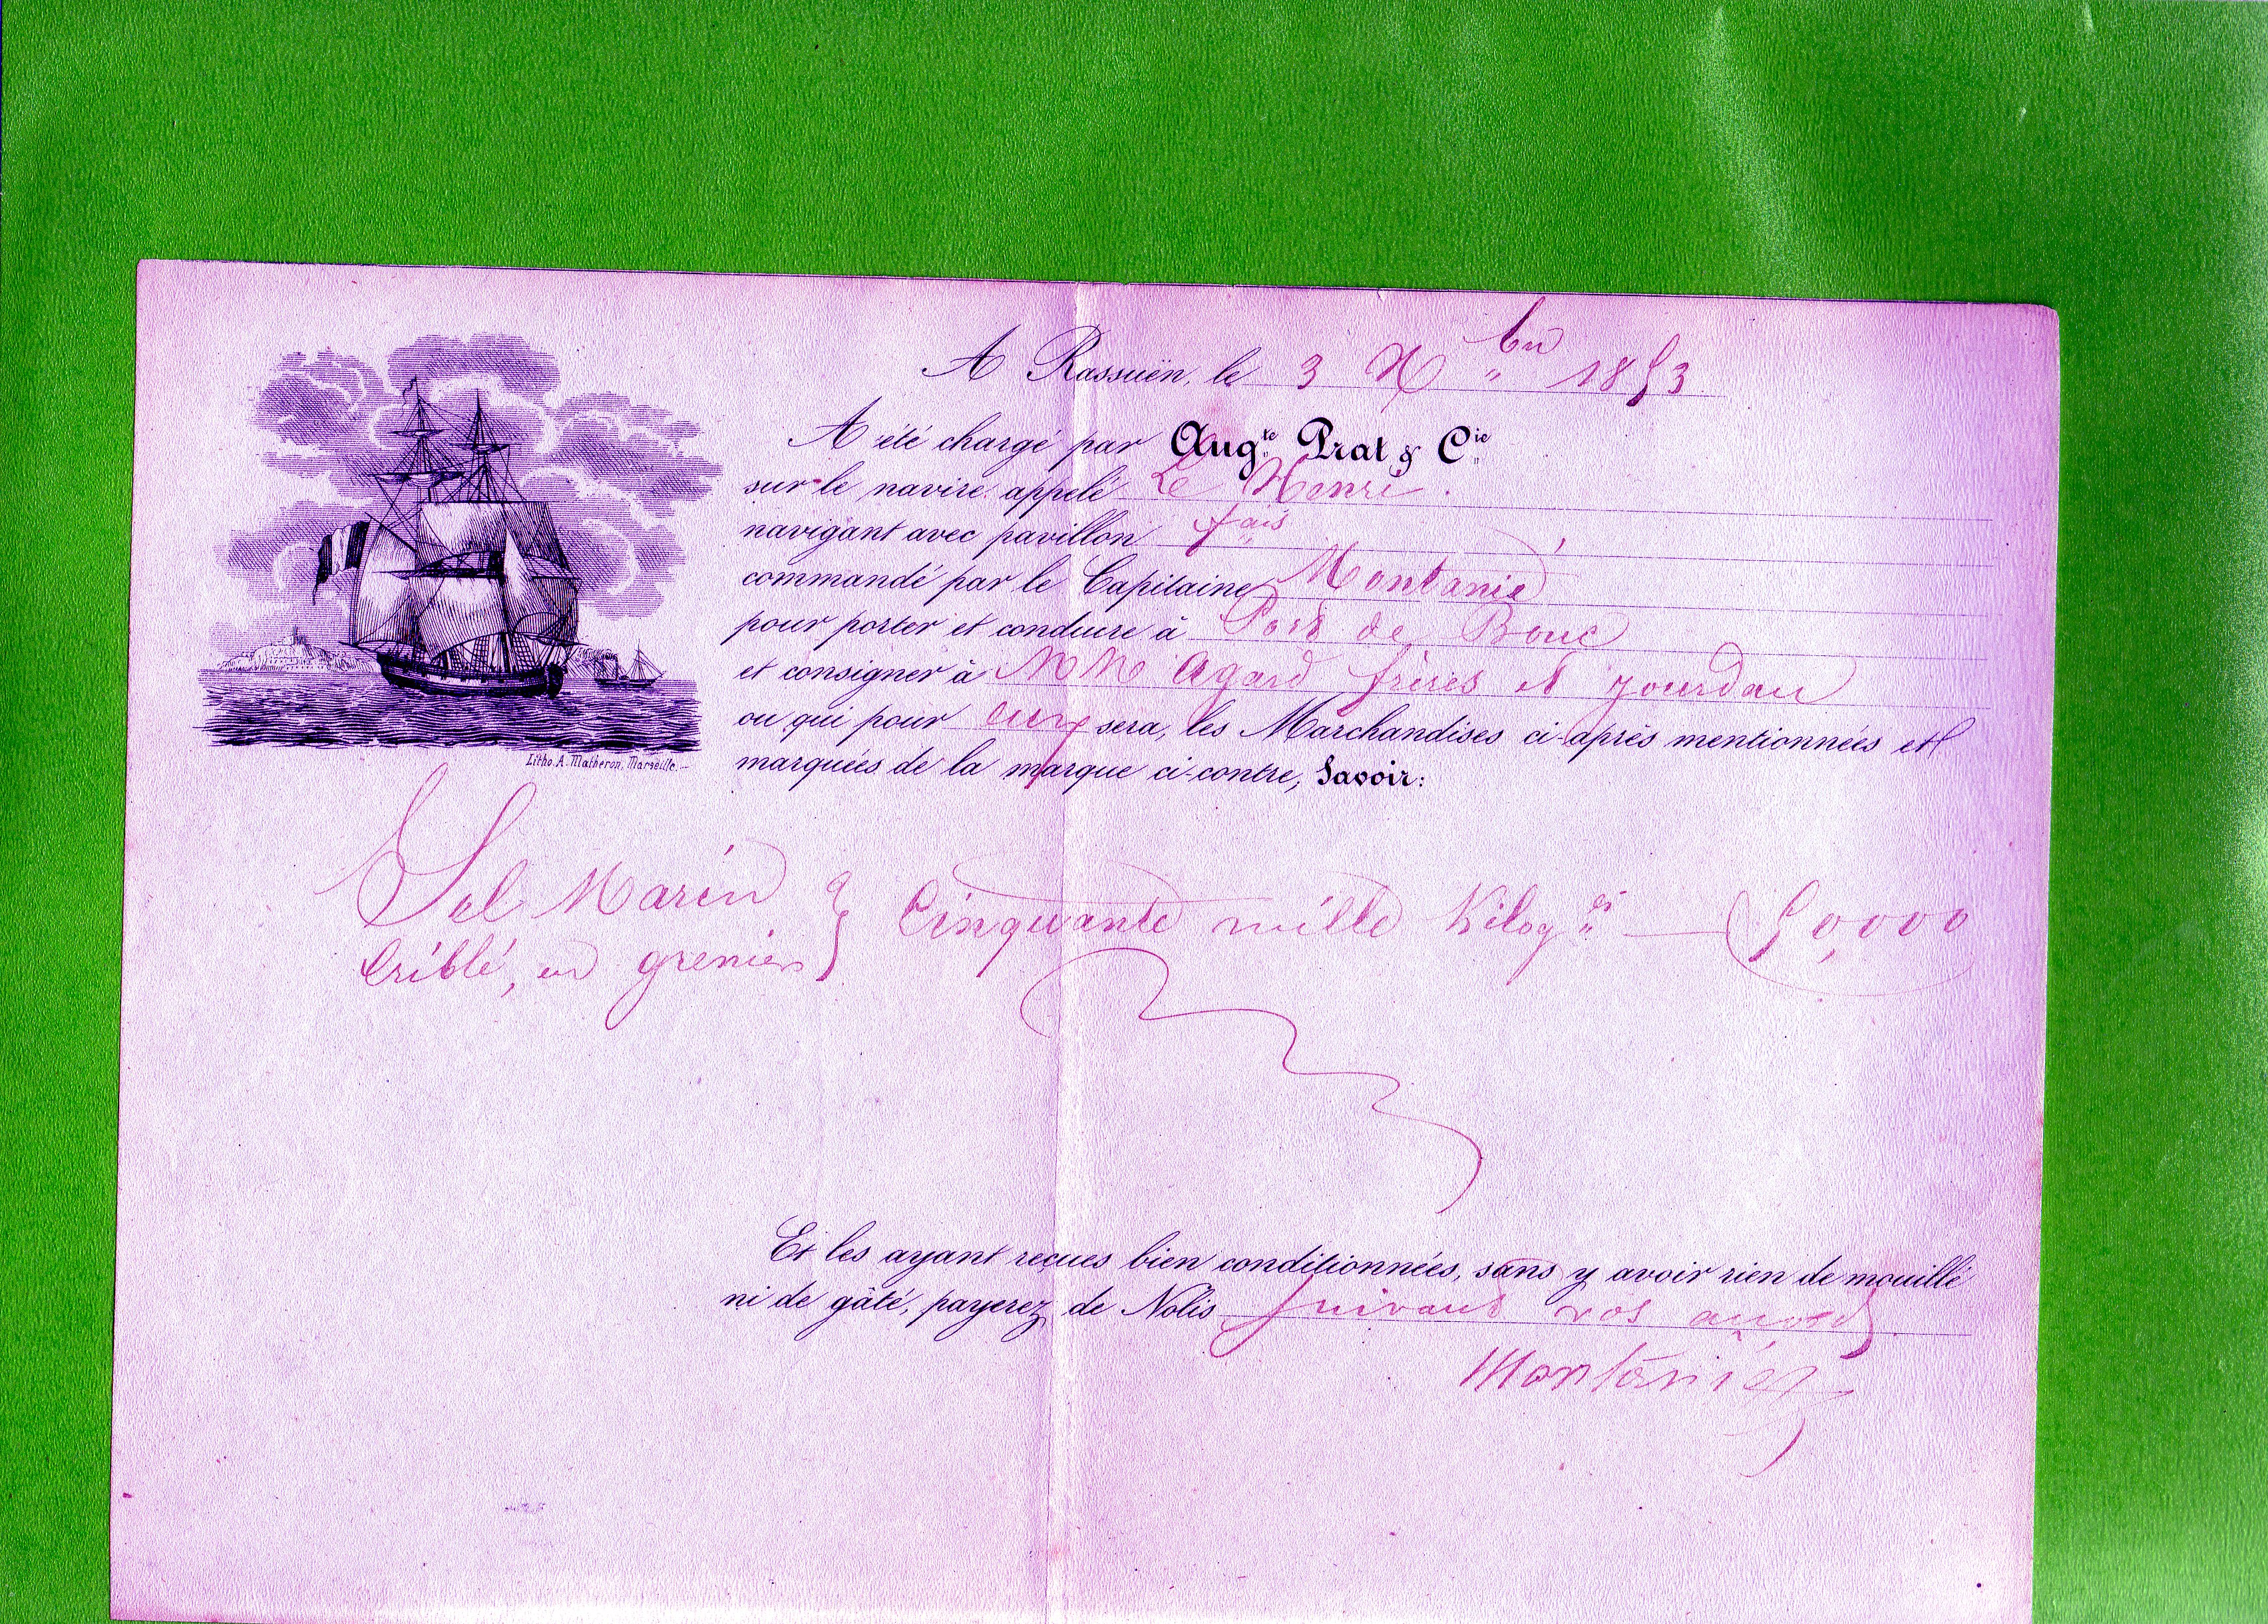 A Rassuën, le 3 X bre 1853
A été chargé par Augte Prat & Cie
sur le navire appelé Le Henri.
navigant avec pavillon fais
commandé par le Capitaine Montanié
pour porter et conduire à Port de Bouc
et consigner à MM Agard frères et Jourdan
ou qui pour eux sera, les Marchandises ci-après mentionnées et
marquées de la marque ci-contre, Savoir:
Litho. A. Matheron, Marseille.
Sel Marin
Criblé, en grenier } Cinquante mille Kilog.es — 50,000
Et les ayant reçues bien conditionnées, sans y avoir rien de mouillé
ni de gâté, payerez de Nolis suivant vos accords